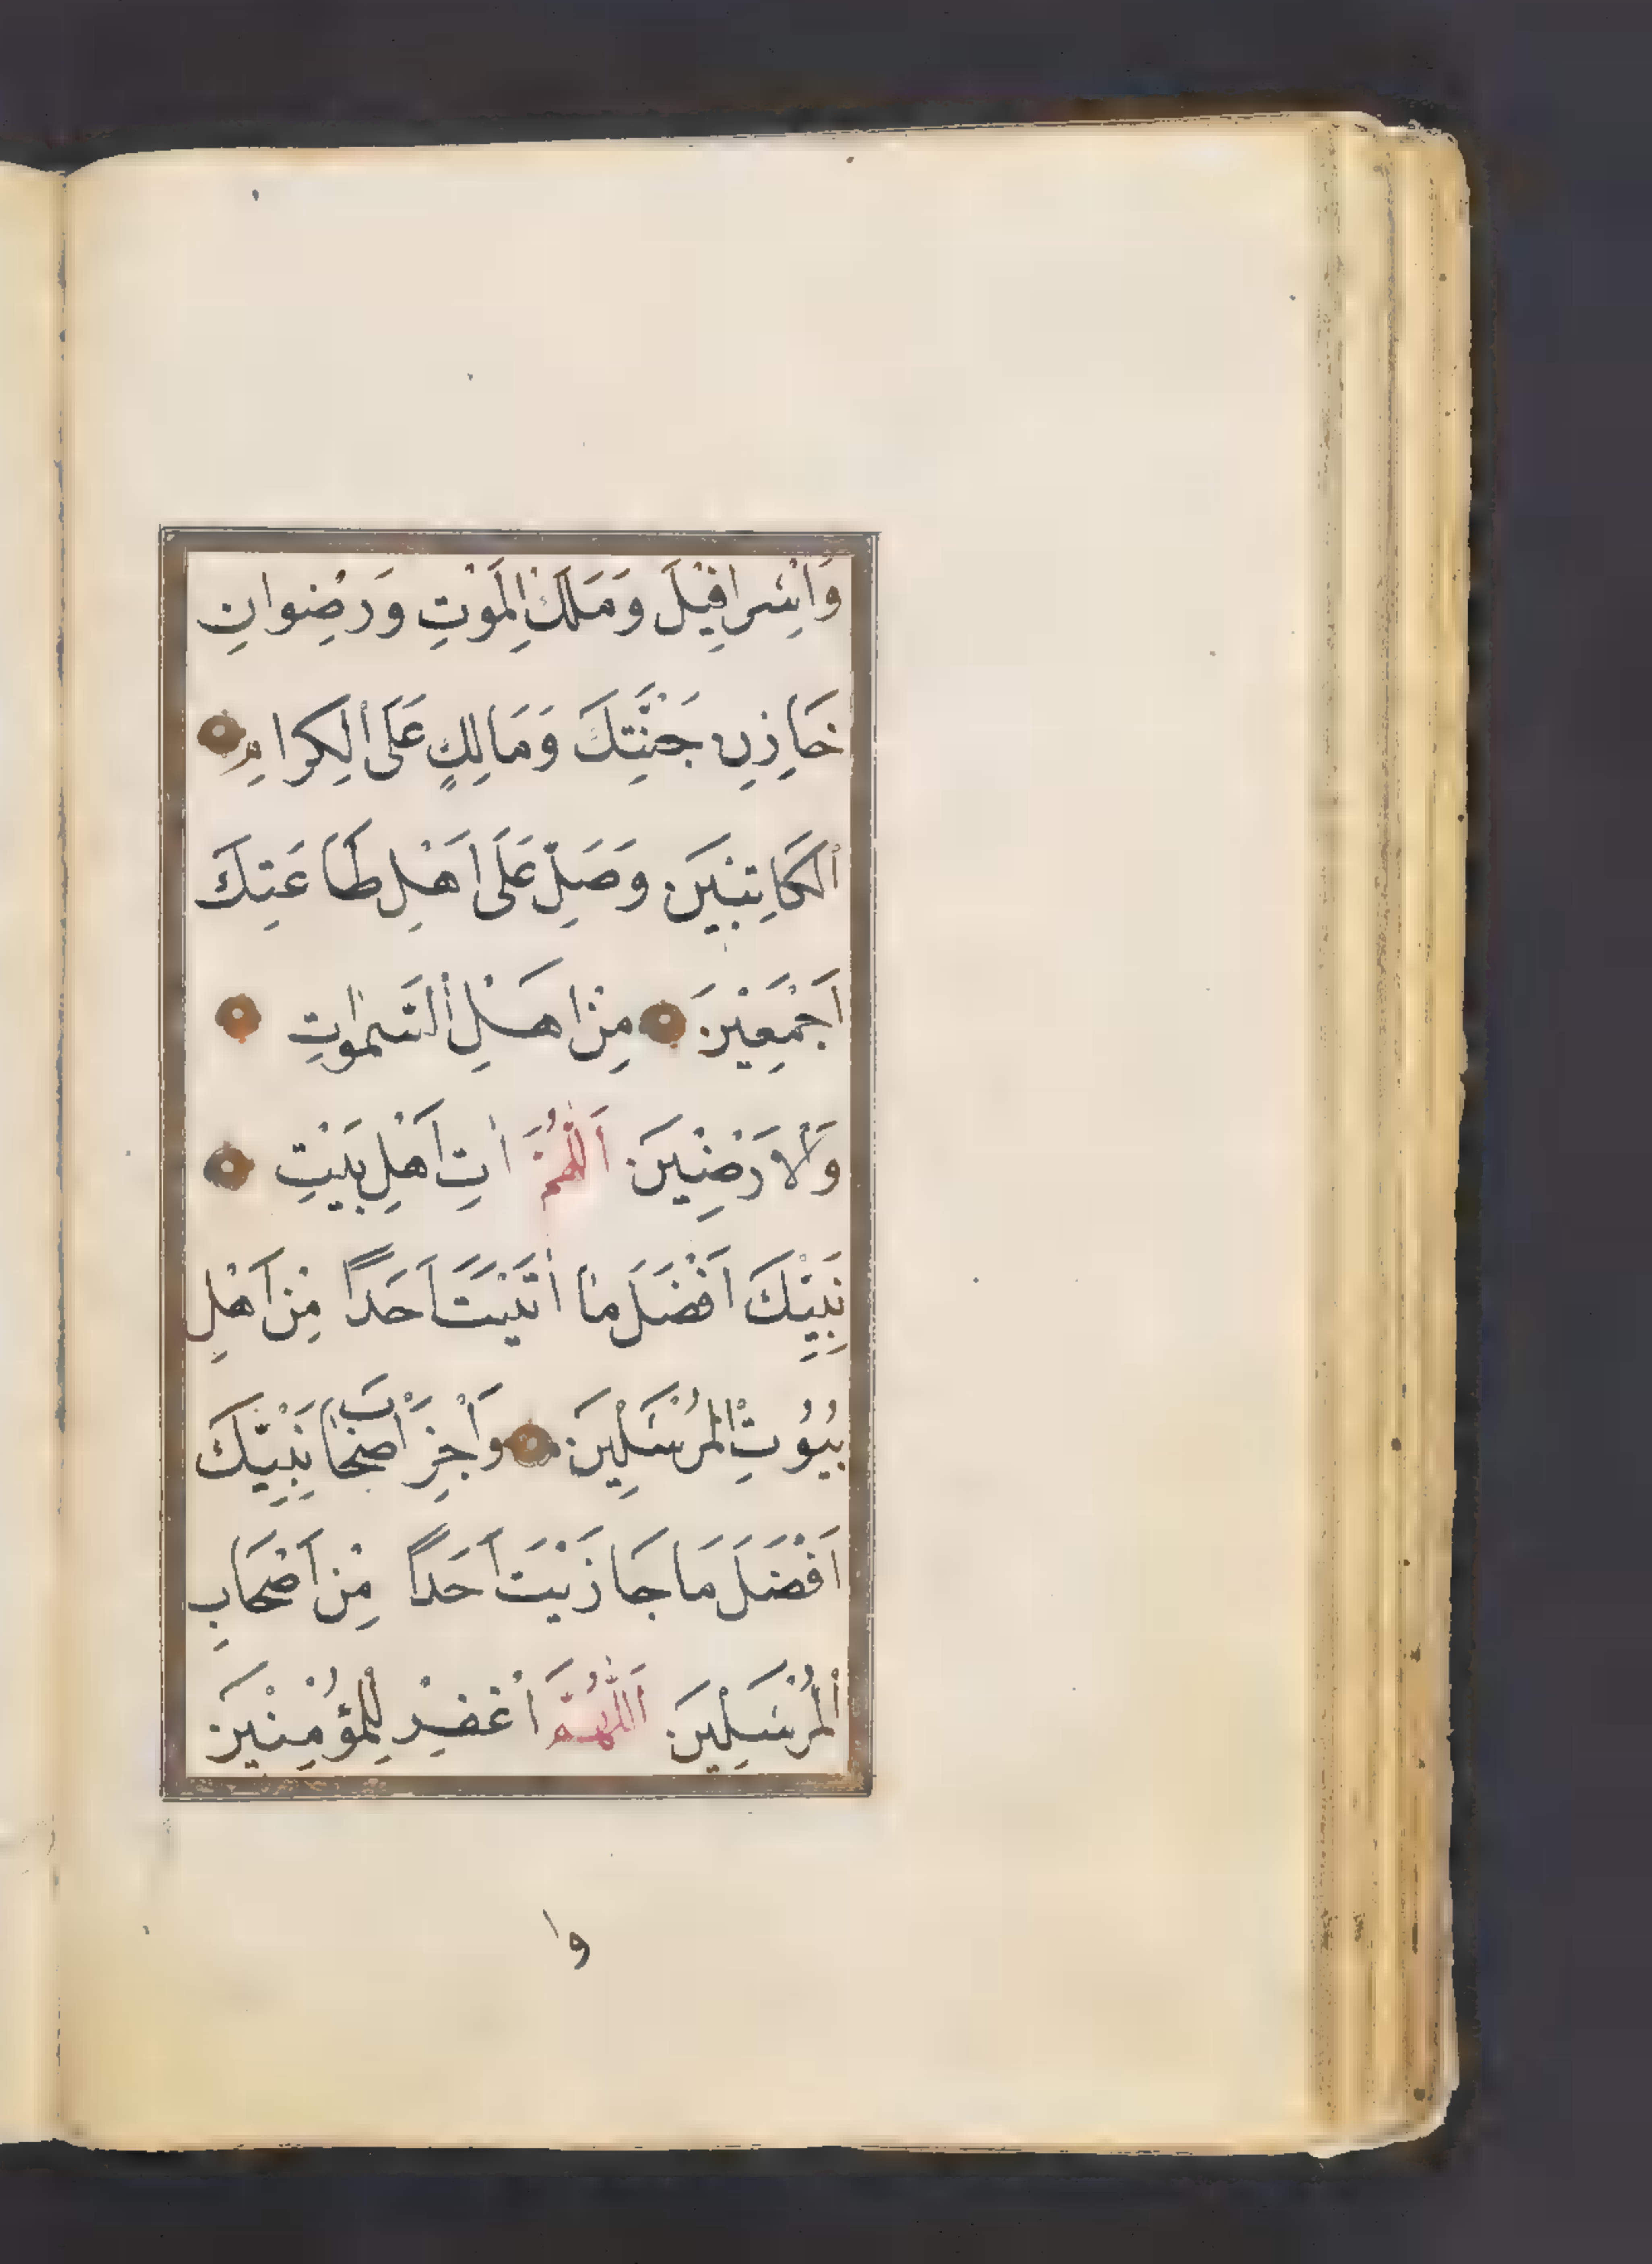 وَاِسْرَافِيْلَ وَمَلَكِ الْمَوْتِ وَرِضْوَانِ
خَازِنِ جَنَّتِكَ وَمَالِكٍ عَلَى الْكِرَامِ
الْكَاتِبْيَنَ وَصَلِّ عَلَى اَهْلِ طَاعَتِكَ
اَجْمَعِيْنَ مِنْ اَهْلِ السَّمٰوَاتِ
وَالْاَرَضِيْنَ اَللّٰهُمَّ اٰتِ اَهْلِ بَيْتِ
نَبِيِّكَ اَفْضَلَ مَا اٰتَيْتَ اَحَدًا مِنْ اَهْلِ
بُيُوتِ الْمُرْسَلِيْنَ وَاَجْزِ اَصْحَابَ نَبِيِّكَ
اَفْضَلَ مَا جَازَيْتَ اَحَدًا مِنْ اَصْحَابِ
الْمُرْسَلِيْنَ اَللّٰهُمَّ اغْفِرْ لِلْمُؤْمِنِيْنَ
وا